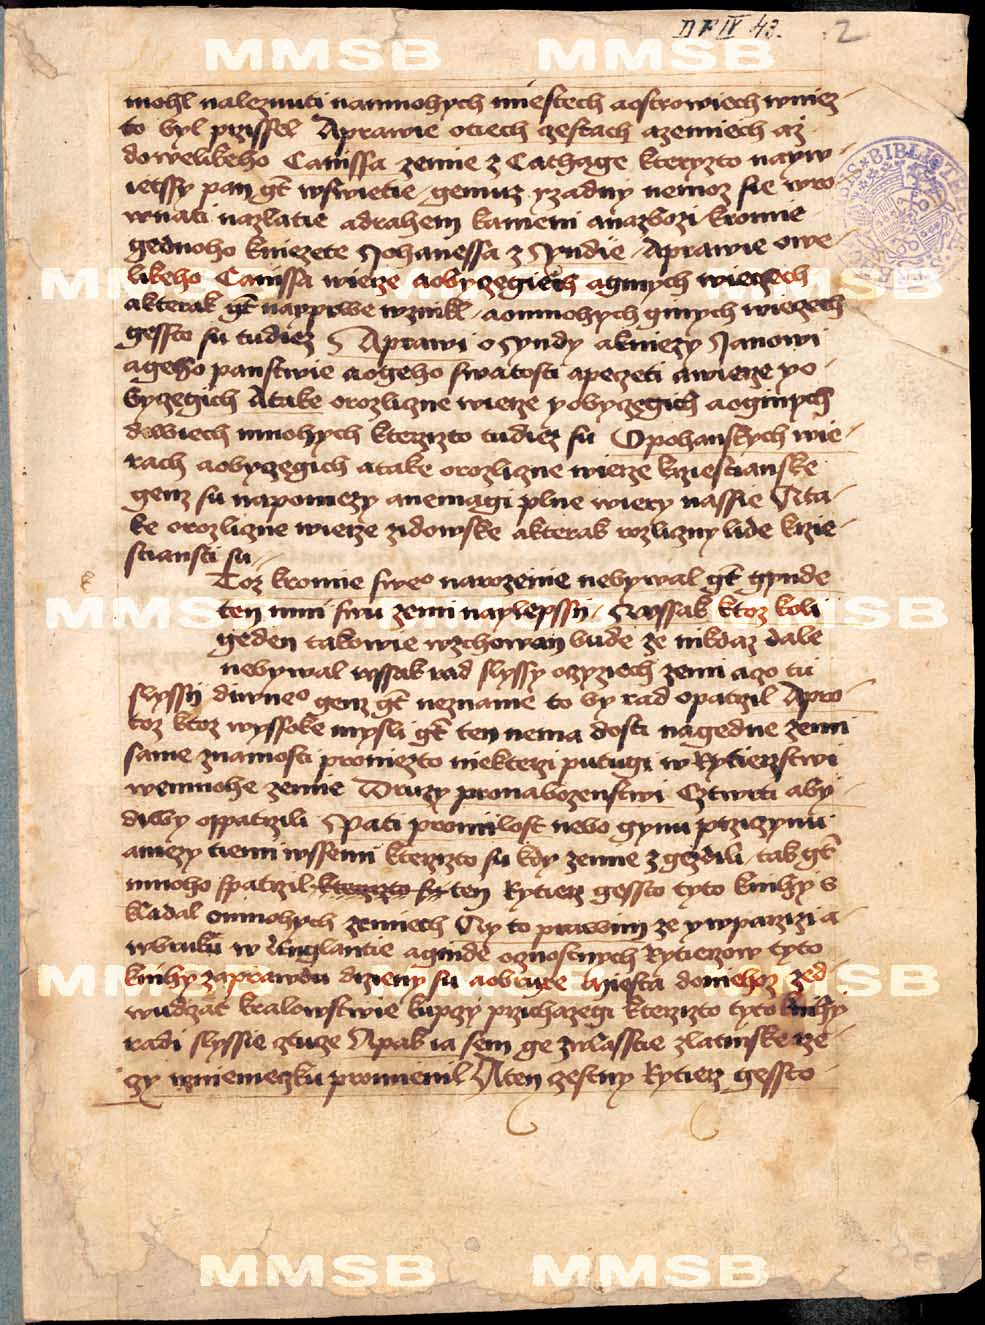 D F IV 43. 2
MMSB MMSB
mohl naleznuti namnohych miestech aostrowiech wniez
to byl przissel Aprawie otiech zestach azemiech az
dowelikeho Canissa zemie z Cathage kteryzto nayw
ietssy pan gt wswietie gemuz yzadny nemoz sie wro
wnati nazlatie adrahem kameni anazbozi kromie
gednoho kniezete Johanessa z Jyndie Aprawie owe
likeho Canissa wierze aobyczegiech aginych wieczech
akterak gt nayprwe wznikl aomnohych ginych wieczech
gessto su tudiez Aprawi o Jyndy akniezy Janowi
ageho panstwie aogeho swatosti apeczeti awierze yo
byczegich Atake orozlizne wierze yobyczegich aoginych
diwiech mnohych kterzizto tudiez su Opohanskych wie
rach aobyczegich atake orozlizne wierze krziestianske
genz su napomezy anemagi plne wiery nassie Ata
ke orozlizne wierze zidowske akterak rozlizny lide krzie
stiansti su
Toz kromie sweo narozenie nebywal gt gynde
ten mni swu zemi naylepssy, Awssak ktoz koli
geden takowie wzchowan bude ze nikdaz dale
nebywal wssak rad slyssy ocyzych zemi aczo tu
slyssy diwneo genz gt neznamé to by rad opatrzil Apro
toz ktoz wyssoke mysli gt ten nema dosti nagedne zemi
same znamosti proniezto niekterzi putugi w Rytierzstwi
wemnohe zemie Druzy pronabozenstwi Cztwrti aby
diwy oppatrzili Pati promilost nebo gynu przicynu
amezy tiemi wssemi kterzizto su kdy zemie zgezdili tak gt
mnoho spatrzil kterzizto su ten Rytierz gessto tyto knihy s
kladal omnohych zemiech Ay to prawim ze ywparzizi a
wbruku w Englantie aginde oznostnych Rytierzow tyto
knihy zaprawdu drzieny su aobrugre miesta domehoz zed
wudzat kralowstwie kupczy przichazegi kterzizto tyto knihy
radi slyssie cztuze Apak ia sem ge zwlasstie zlatinske rze
czy wniemeczku promienil Aten czestny Rytierz gessto
MMSB MMSB